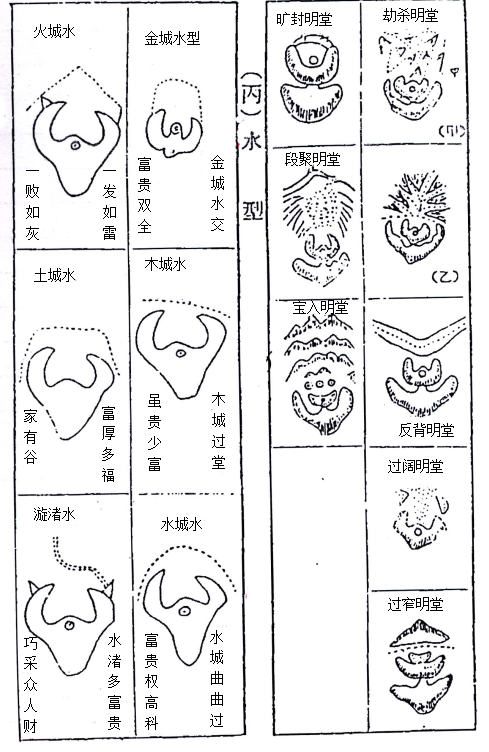 火城水
一发如雷
一败如灰
金城水型
金城水交
富贵双全
土城水
富厚多福
家有谷
木城水
木城过堂
虽贵少富
漩渚水
水渚多富贵
巧采众人财
水城水
水城曲曲过
富贵权高科
(丙)水型
旷封明堂
劫杀明堂
段聚明堂
(乙)
宝入明堂
反背明堂
过阔明堂
过窄明堂